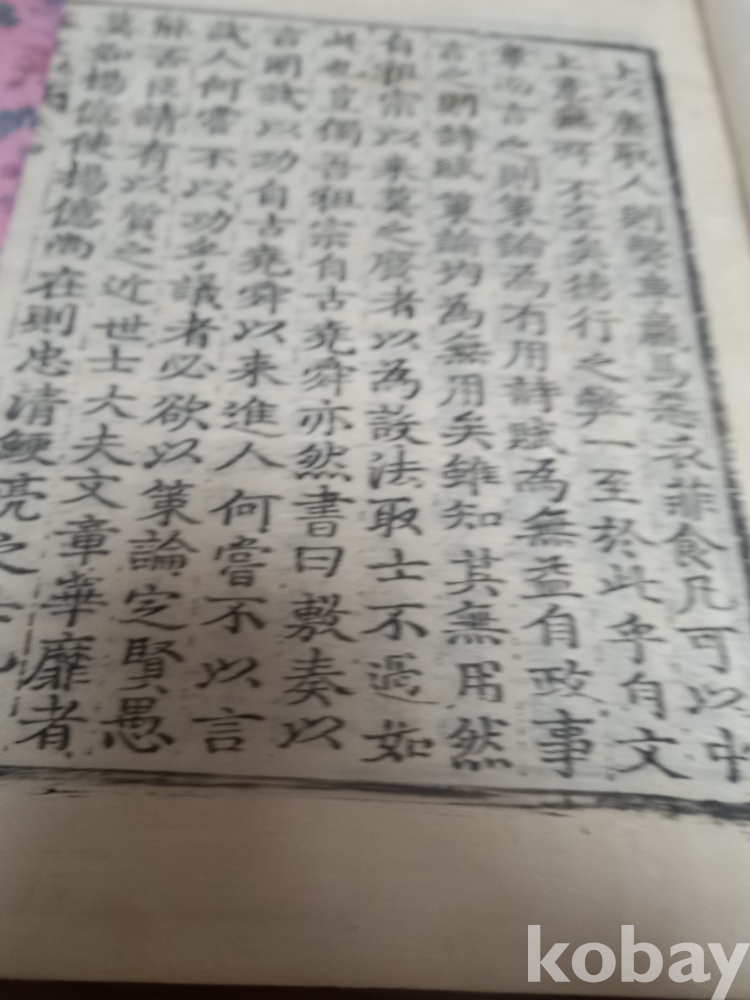 上以廉取人則弊車羸馬惡衣菲食凡可以中
上意無所不至矣德行之弊一至於此乎自文
章而言之則策論為有用詩賦為無益自政事
言之則詩賦策論均為無用矣雖知其無用然
自祖宗以来莫之廢者以為設法取士不過如
此也豈獨吾祖宗自古堯舜亦然書曰敷奏以
言明試以功自古堯舜以来進人何嘗不以言
試人何嘗不以功乎議者必欲以策論定賢愚
能否臣請有以質之近世士大夫文章華靡者
莫如楊億使楊億尚在則忠清鯁亮之士
kobay